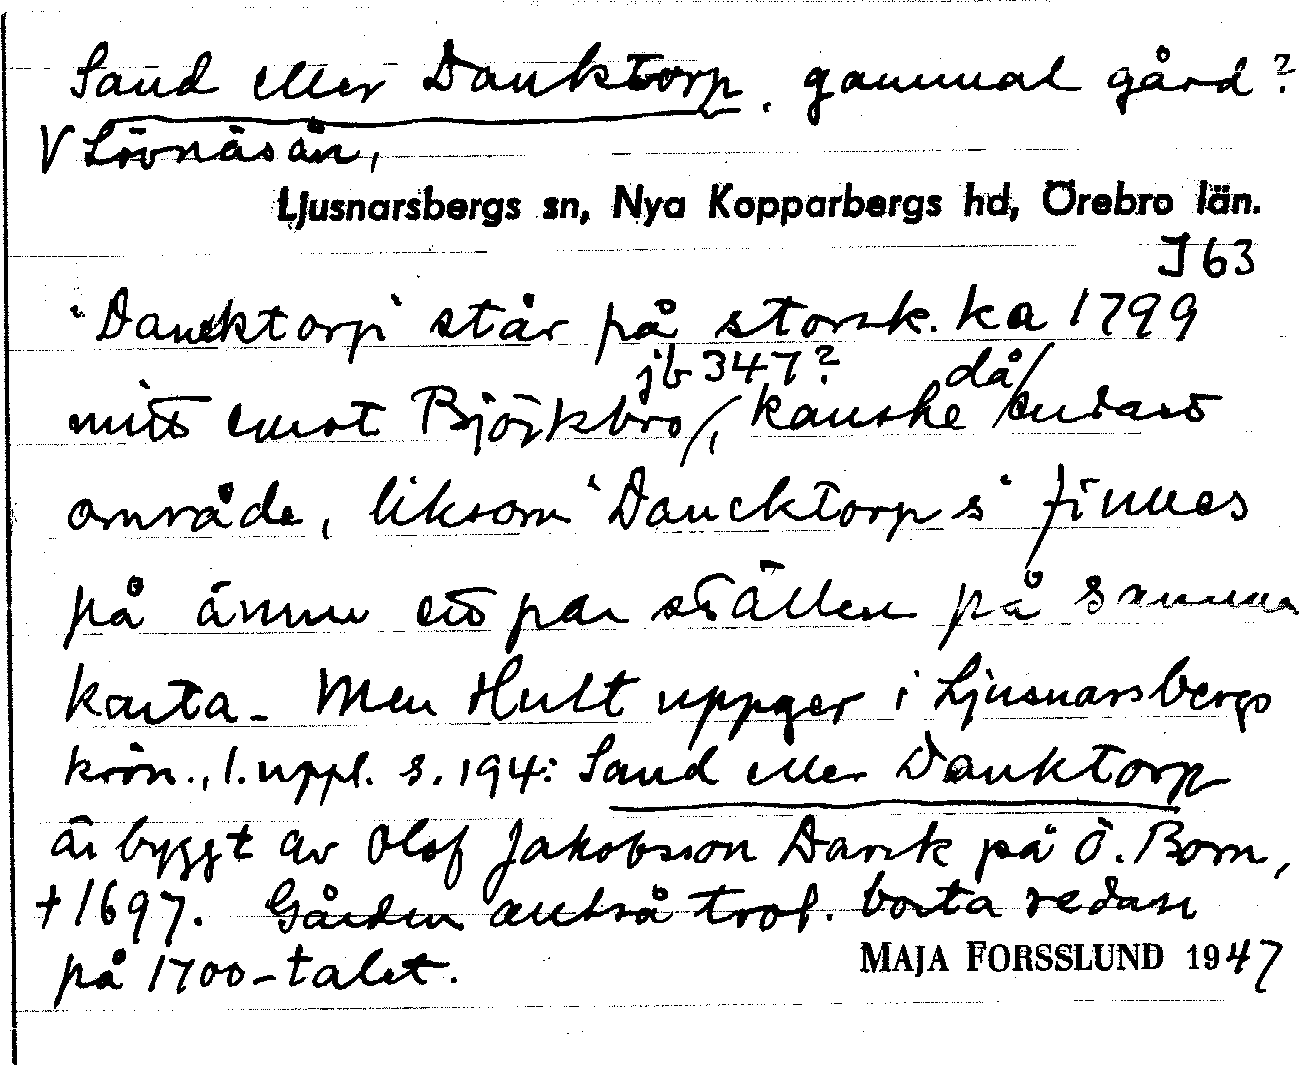 Sand eller Danktorp. gammal gård?
V Lövnäsån,
Ljusnarsbergs sn, Nya Kopparbergs hd, Örebro län.
J 63
"Dancktorp" står på storsk. ka 1799
jb 347? då
mitt emot Björkbro/, kanske /endast
område, liksom "Dancktorps" finnes
på ännu ett par ställen på samma
karta – Men Hult uppger i Ljusnarsbergs
krön., 1. uppl. s. 194: Sand eller Danktorp
är byggt av Olof Jakobsson Danck på Ö. Born,
+ 1697. Gården alltså trol. borta redan
på 1700-talet.
MAJA FORSSLUND 1947